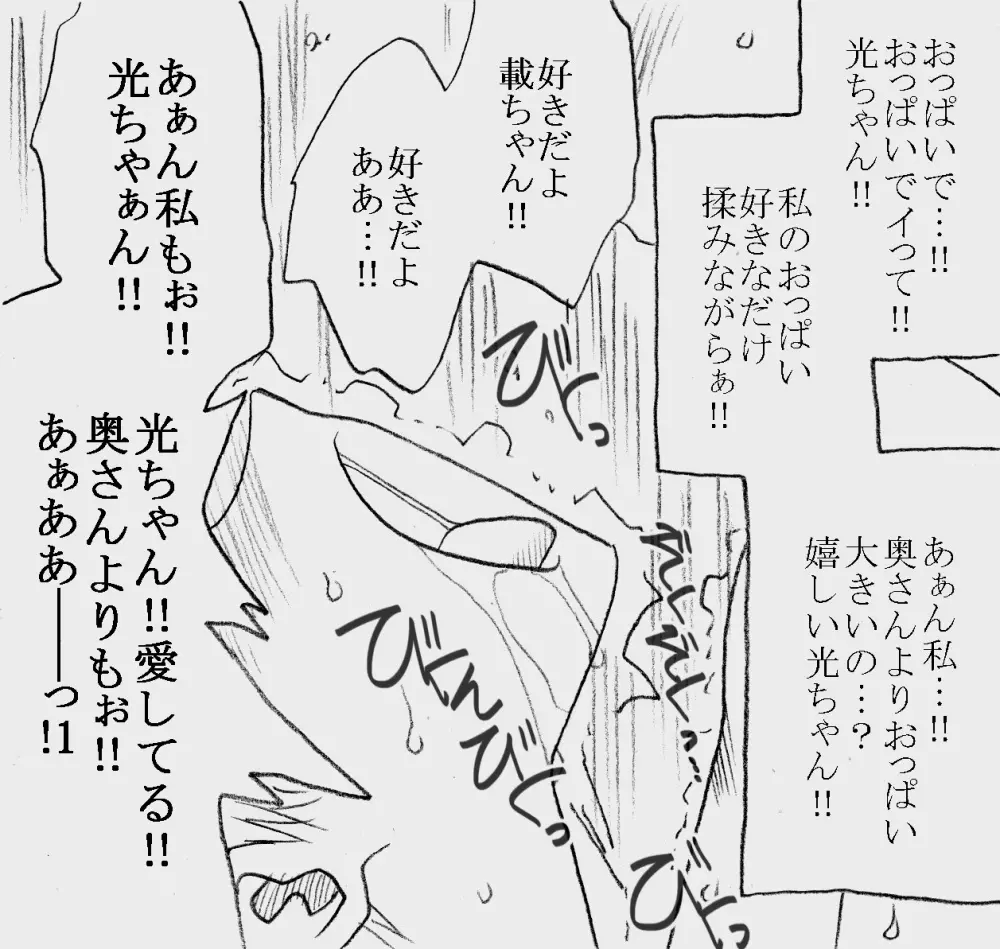 おっぱいで…!!
おっぱいでイって!!
光ちゃん!!
私のおっぱい
好きなだけ
揉みながらぁ!!
あぁん私…!!
奥さんよりおっぱい
大きいの…?
嬉しい光ちゃん!!
好きだよ
載ちゃん!!
好きだよ
ああ…!!
あぁん私もぉ!!
光ちゃぁん!!
光ちゃん!!愛してる!!
奥さんよりもぉ!!
あぁああ――っ!1
びくっ
びくん
びくっ
びくっ